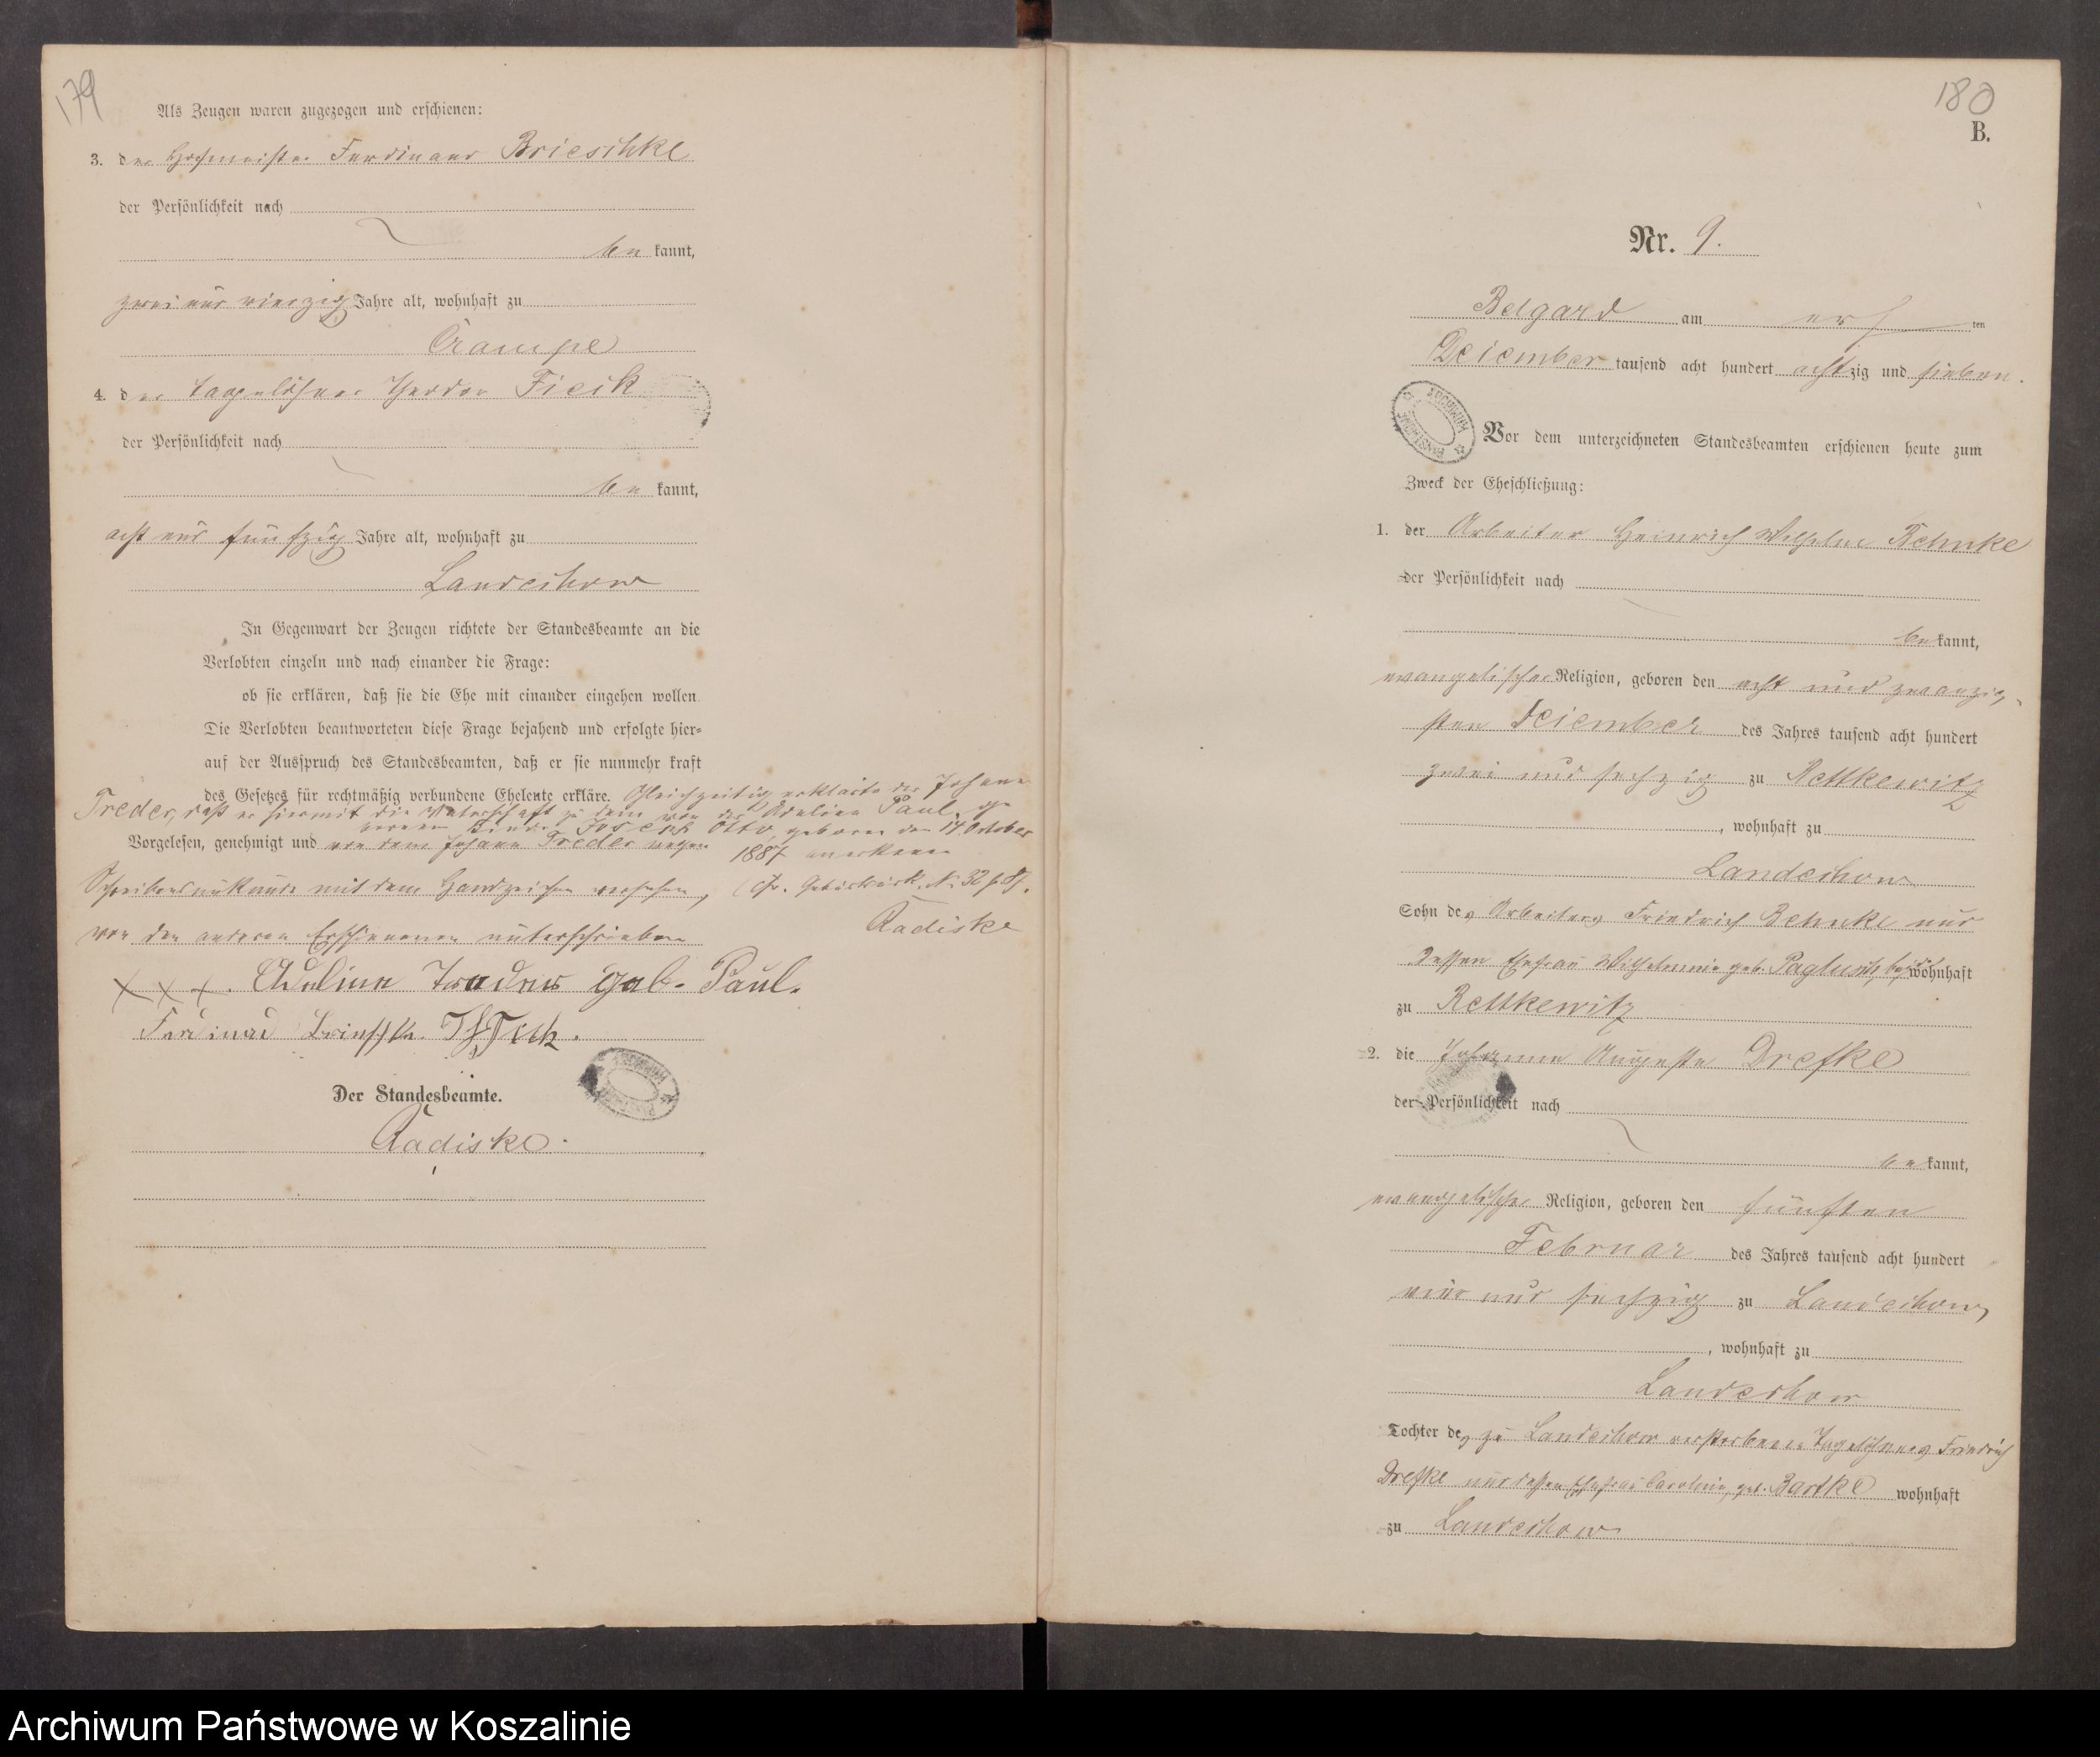 179
Als Zeugen waren zugezogen und erschienen:
3. der Hofmeister Ferdinand Brieschke
der Persönlichkeit nach
be kannt,
zwei und vierzig Jahre alt, wohnhaft zu
Crampe
4. der Tagelöhner Theodor Fieck
der Persönlichkeit nach
be kannt,
acht und fünfzig Jahre alt, wohnhaft zu
Landechow
In Gegenwart der Zeugen richtete der Standesbeamte an die
Verlobten einzeln und nach einander die Frage:
ob sie erklären, daß sie die Ehe mit einander eingehen wollen.
Die Verlobten beantworteten diese Frage bejahend und erfolgte hier-
auf der Ausspruch des Standesbeamten, daß er sie nunmehr kraft
des Gesetzes für rechtmäßig verbundene Eheleute erkläre. Gleichzeitig erklärte der Johann
Treder, daß er hiermit die Vaterschaft zu dem von der Adeline Paul ge
borenen Kinde Joseph Otto geboren den 14 October
1887 anerkenne
Vorgelesen, genehmigt und von dem Johann Treder wegen
Schreibensunkunde mit dem Handzeichen versehen, (cfr. Geburtsrk. No 32 p. 87.
von den anderen Erschienenen unterschrieben
Radiske
+ + +. Adeline Treder geb. Paul.
Ferdinand Brieschke. Th Fieck.
Der Standesbeamte.
Radiske.
180
B.
Nr. 9.
Belgard am ersten
December tausend acht hundert achtzig und sieben.
Vor dem unterzeichneten Standesbeamten erschienen heute zum
Zweck der Eheschließung:
1. der Arbeiter Heinrich Wilhelm Behnke
der Persönlichkeit nach
be kannt,
evangelischer Religion, geboren den acht und zwanzig-
sten December des Jahres tausend acht hundert
zwei und sechzig zu Rettkewitz
, wohnhaft zu
Landechow
Sohn des Arbeiters Friedrich Behnke und
dessen Ehefrau Wilhelmine geb. beide wohnhaft
zu Rettkewitz
2. die Johanne Auguste Drefke
der Persönlichkeit nach
be kannt,
evangelischer Religion, geboren den fünften
Februar des Jahres tausend acht hundert
vier und sechzig zu Landechow
, wohnhaft zu
Landechow
Tochter des zu Landechow verstorbenen Tagelöhners Friedrich
Drefke und dessen Ehefrau Caroline, geb. Bartke wohnhaft
zu Landechow
Archiwum Państwowe w Koszalinie